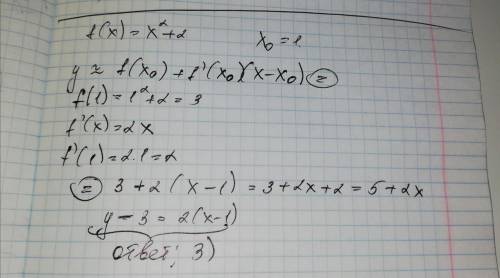 f(x) = x²+2   x₀ = 1.
y ≈ f(x₀) + f'(x₀)(x-x₀) =
f(1) = 1²+2 = 3
f'(x) = 2x
f'(1) = 2·1 = 2
= 3+2(x-1) = 3+2x+2 = 5+2x
y-3 = 2(x-1)
ответ; 3)